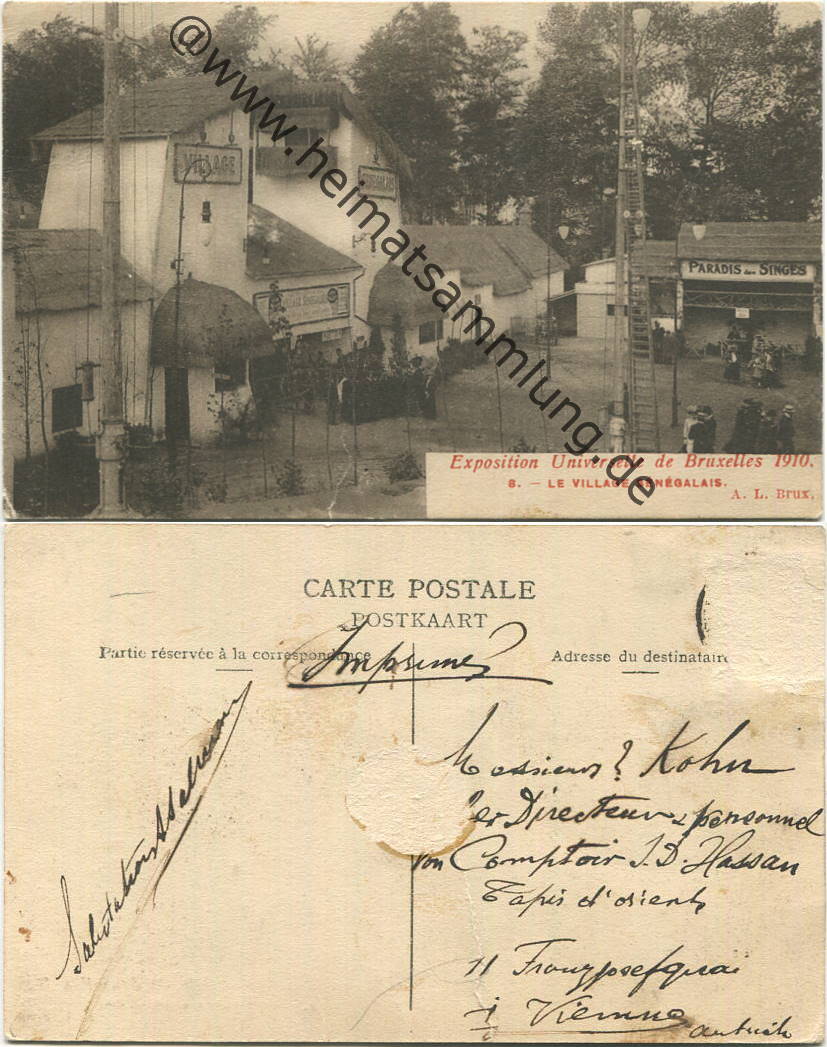 @www.heimatsammlung.de
VILLAGE
SÉNÉGALAIS
PARADIS des SINGES
Exposition Universelle de Bruxelles 1910.
8. — LE VILLAGE SÉNÉGALAIS.
A. L. Brux.
CARTE POSTALE
POSTKAART
Partie réservée à la correspondance
Adresse du destinataire
Imprimés
Salutations
Messieurs Kohn
Directeur & personnel
von Comptoir J. D. Hassan
Tapis d'orient
11 Franzjosefquai
i Vienne